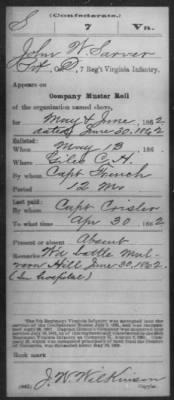 (Confederate.)
S 7 Va.
John W. Sarver
Pvt, Co. D, 7 Reg't Virginia Infantry.
Appears on
Company Muster Roll
of the organization named above,
for May & June, 1862
dated June 30, 1862
Enlisted:
When May 13, 1862
Where Giles C.H.
By whom Capt French
Period 12 Mo
Last paid:
By whom Capt Crisler
To what time Apr 30, 1862
Present or absent Absent
Remarks: W'd battle Mal-
vern Hill June 30, 1862.
(In hospital)
Book mark
J. W. Wilkinson
(642) Copyist.